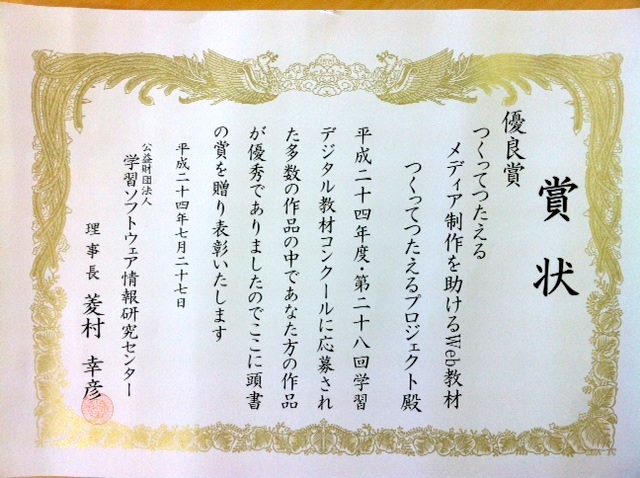 賞状
優良賞
つくってつたえる
メディア制作を助けるWeb教材
つくってつたえるプロジェクト殿
平成二十四年度・第二十八回学習
デジタル教材コンクールに応募され
た多数の作品の中であなた方の作品
が優秀でありましたのでここに頭書
の賞を贈り表彰いたします
平成二十四年七月二十七日
公益財団法人
学習ソフトウェア情報研究センター
理事長 菱村 幸彦